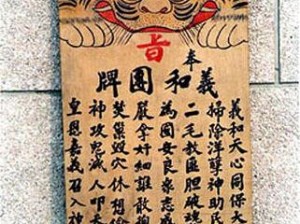 奉
旨
義和團牌
義和天心同保大
掃除洋孽神助民
二毛教匪胆破魂
為國安良家忘
嚴拿奸細誰敢抱
焚巢毀穴休想偷
神攻鬼滅人叩
皇恩嘉義召入神